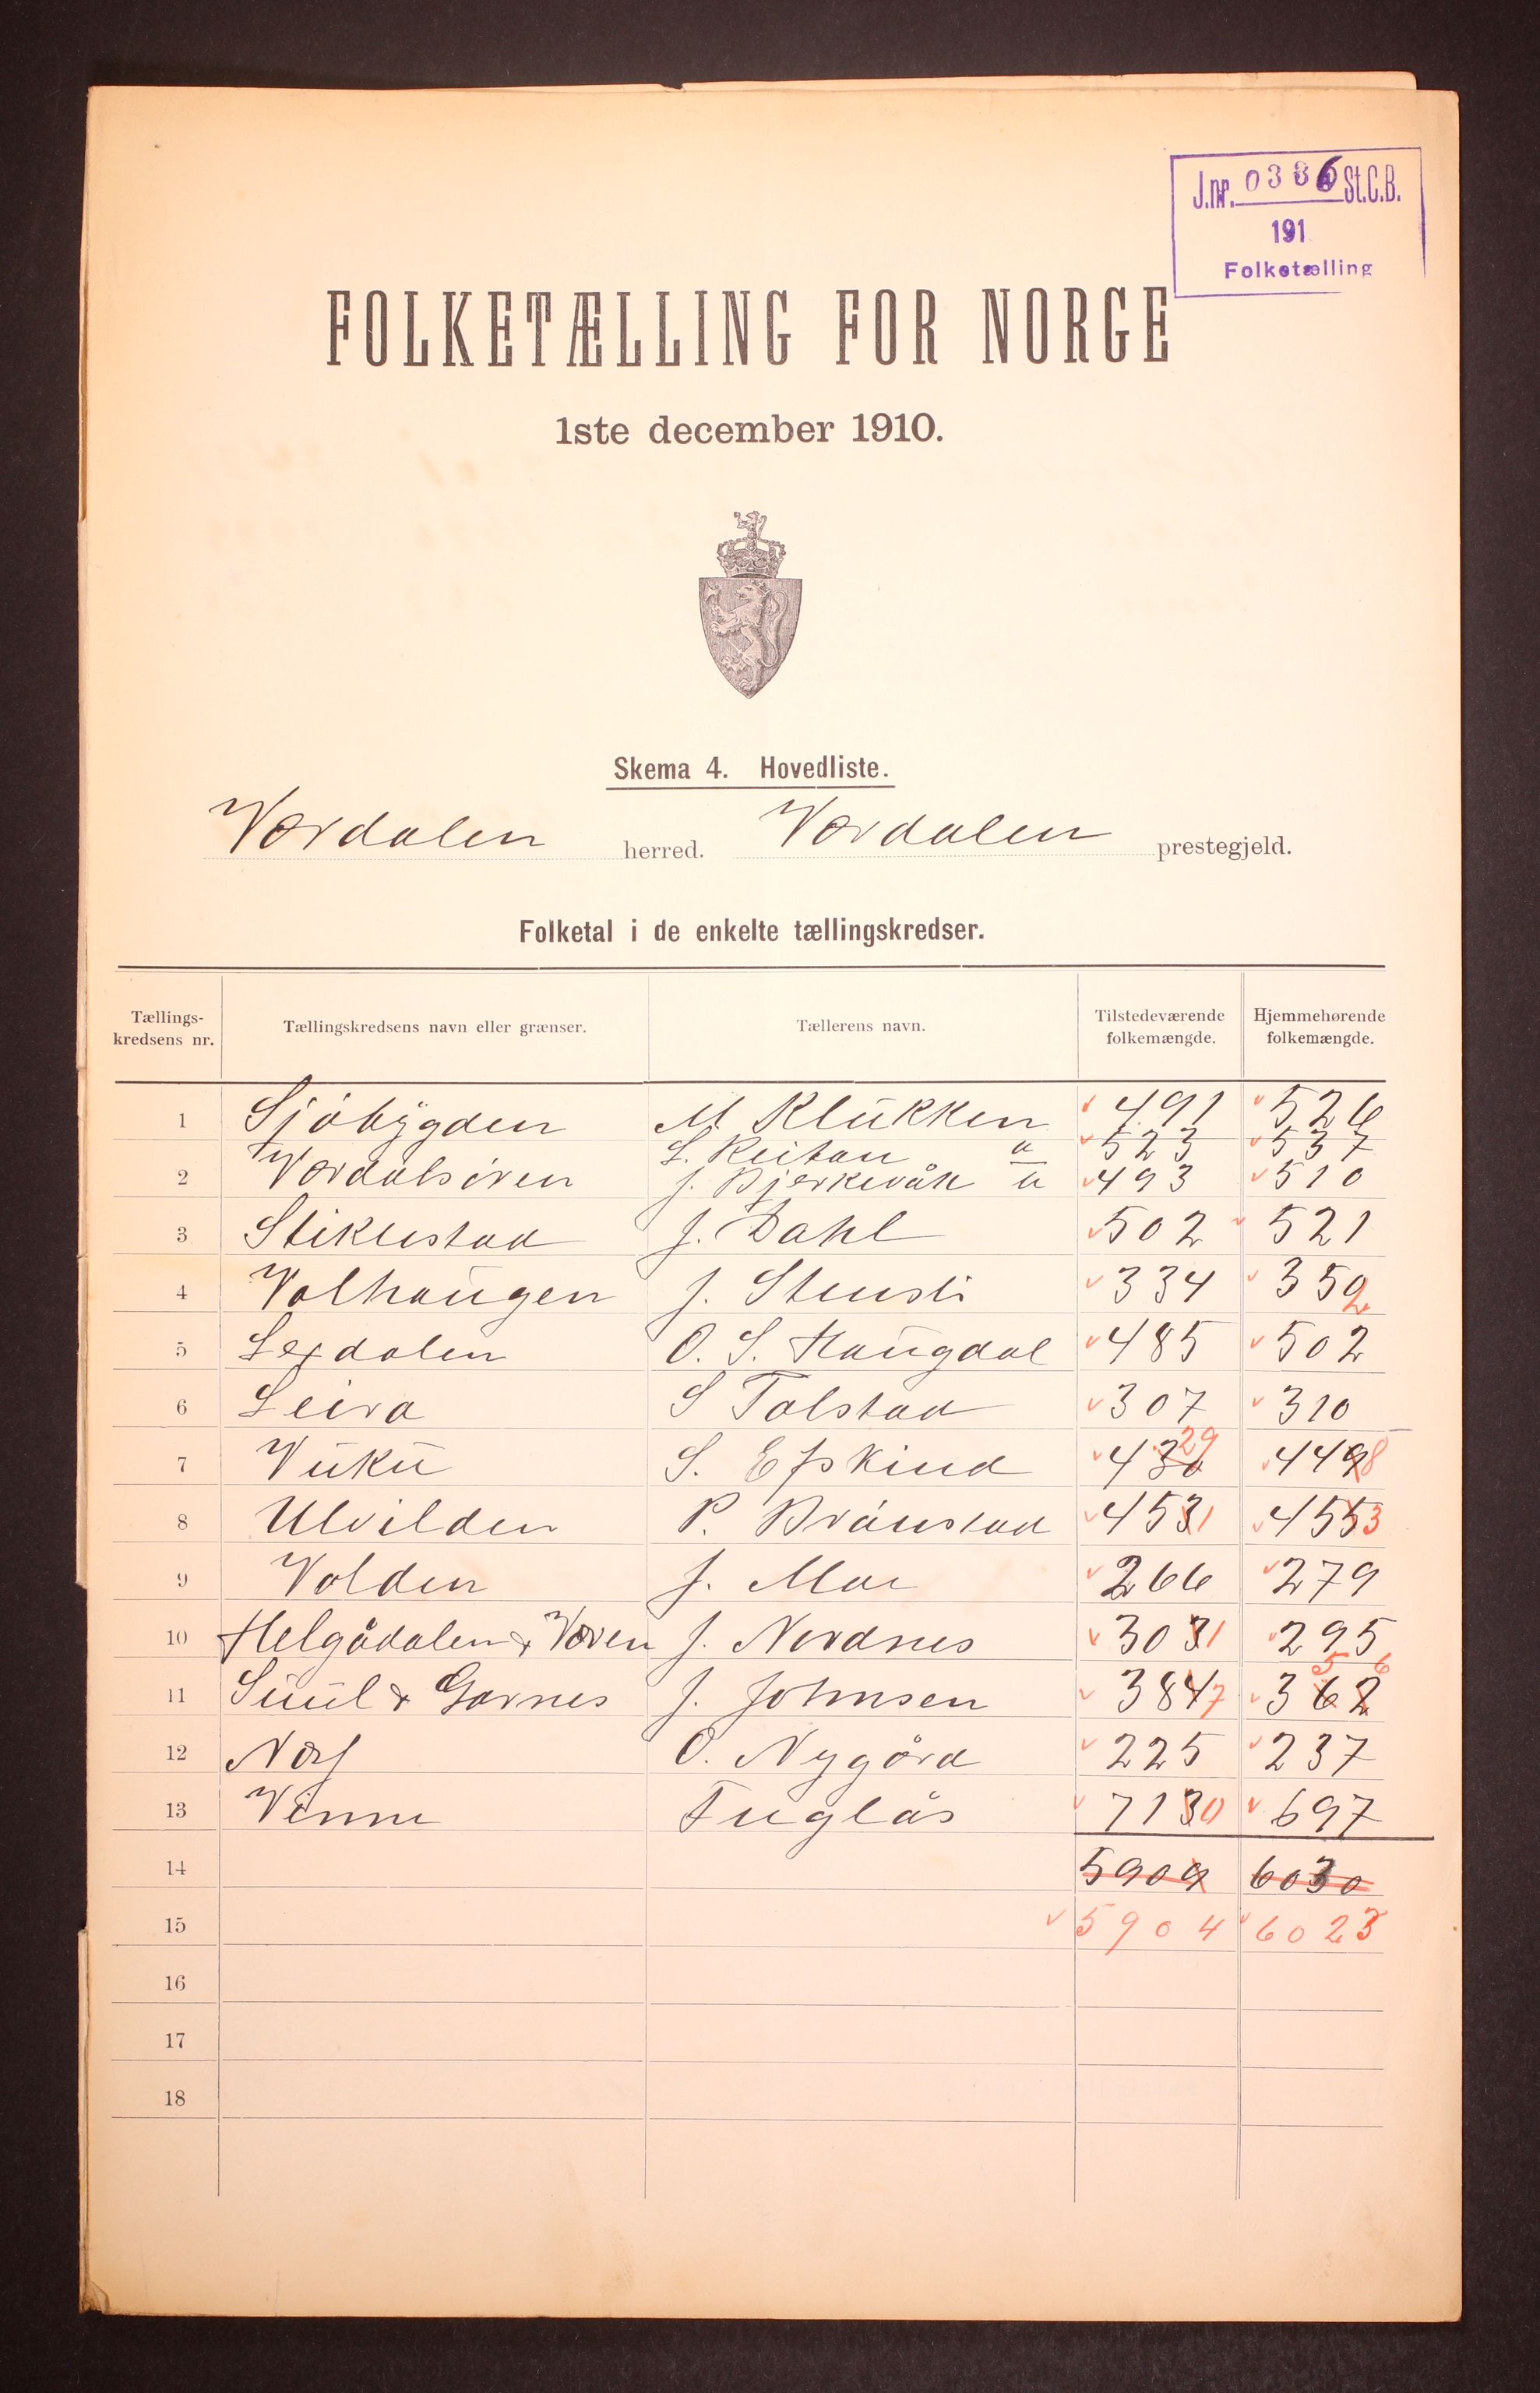 J.nr. 0386 St.C.B.
191
Folketælling
FOLKETÆLLING FOR NORGE
1ste december 1910.
Skema 4. Hovedliste.
Værdalen herred. Værdalen prestegjeld.
Folketal i de enkelte tællingskredser.
Tællings-kredsens nr. Tællingskredsens navn eller grænser. Tællerens navn. Tilstedeværende folkemængde. Hjemmehørende folkemængde.
1 Sjöbygden M Klukken 491 526
L. Reitan a 523 537
2 Værdalsören J. Bjerkvåk u 493 510
3 Stiklestad J. Dahl 502 521
4 Volhaugen J. Stensli 334 352
5 Lexdalen O. S. Haugdal 485 502
6 Leira S Tolstad 307 310
7 Vuku S. Efskind 430 29 449 8
8 Ulvilden P. Brönstad 453 1 455 3
9 Volden J. Moe 266 279
10 Helgådalen & Væren J. Nordnes 303 1 295
11 Suul & Garnes J. Johnsen 384 7 362 5 6
12 Næs O. Nygård 225 237
13 Vinne Fuglås 713 0 697
14 5909 6030
15 5904 6023
16
17
18